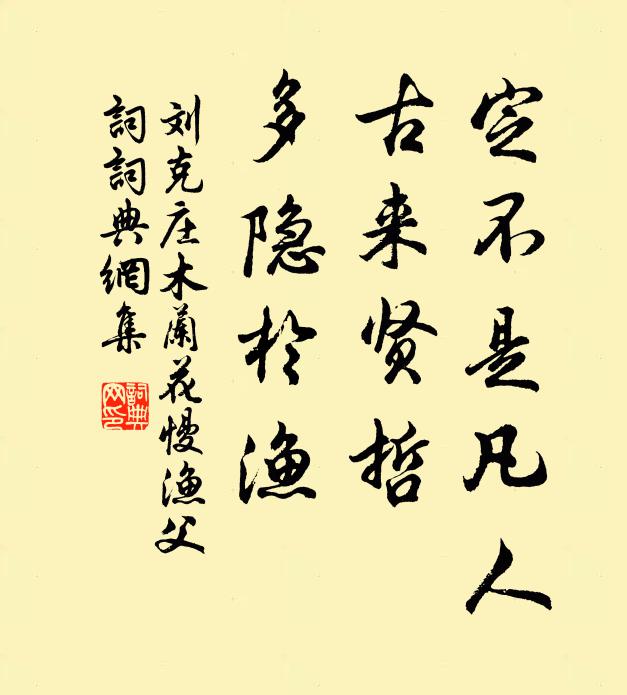 定不是凡人
古来贤哲
多隐於渔
刘克庄木蘭花慢渔父
詞詞典網集
詞典网印